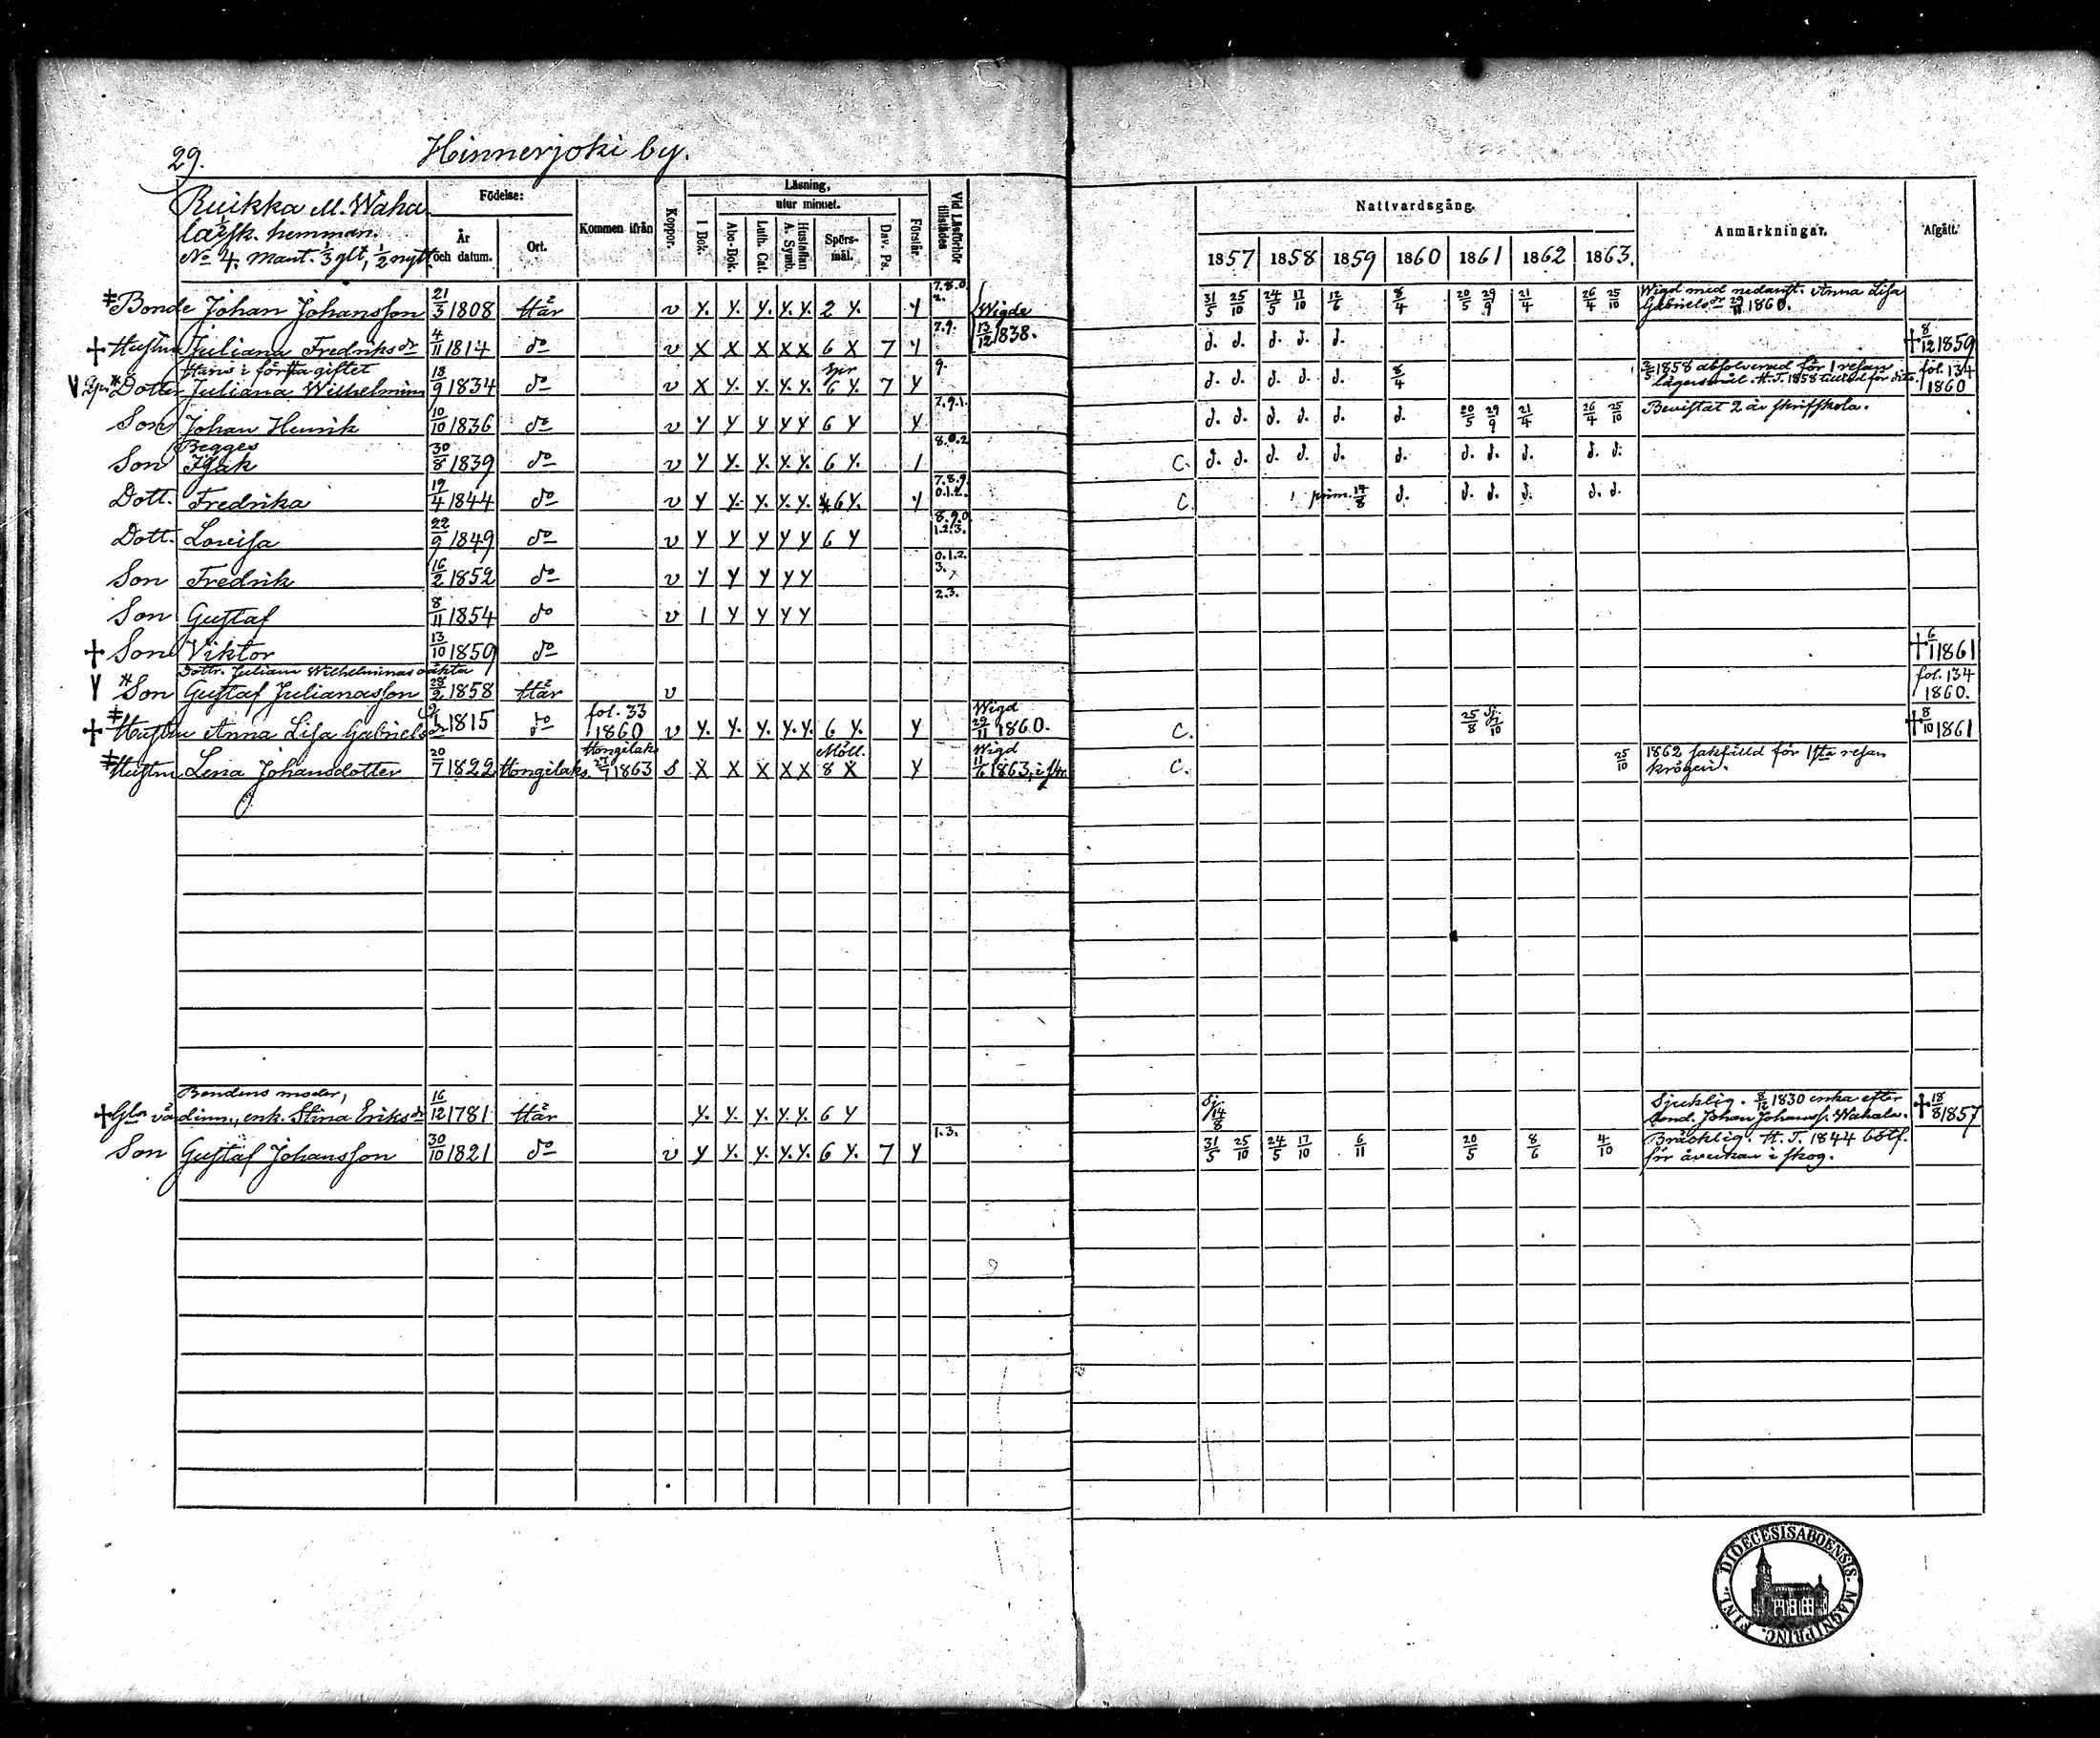 29. Hinnerjoki by.
Ruikka M. Waha-
la, sk. hemman.
No 4. Mant. 1/3 glt, 1/2 nytt.
Födelse:
År och datum.
Ort.
Kommen ifrån
Koppor.
Läsning,
utur minnet.
I Bok.
Abc-Bok.
Luth. Cat.
Hustaflan A. Symb.
Spörsmål.
Dav. Ps.
Förstår.
Vid Läsförhör tillstädes
Nattvardsgång.
1857 1858 1859 1860 1861 1862 1863.
Anmärkningar.
Afgått.
‡ Bonde Johan Johansson 21/3 1808 Här v Y. Y. Y. Y. Y. 2 Y. Y 7.8.0. 2. Wigde 13/12 1838. 31/5 25/10 24/5 17/10 12/6 8/4 20/5 29/9 21/4 26/4 25/10 Wigd med nedanst. Anna Lisa Gabrielsdr 29/11 1860.
† Hustru Juliana Fredriksdr 4/11 1814 do v X X X X X 6 X 7 Y 7.9. d. d. d. d. d. † 8/12 1859
Hans i första giftet
V Dotter Juliana Wilhelmina 18/9 1834 do v X Y. Y. Y. Y. 6 Y. 7 Y 9. d. d. d. d. d. 8/4 2/5 1858 absolverad för 1 resan lägersmål. H.T. 1858 fol. 134 1860
Son Johan Henrik 10/10 1836 do v Y Y Y Y Y 6 Y Y 7.9.1. d. d. d. d. d. d. 20/5 29/9 21/4 26/4 25/10 Bevistat 2 år skriftskola.
Begges
Son Isak 30/8 1839 do v Y Y. Y. Y. Y. 6 Y. 1 8.0.2 C. d. d. d. d. d. d. d. d. d. d. d.
Dott. Fredrika 19/4 1844 do v Y Y. Y. Y. Y. 6 Y. Y 7.8.9. 0.1.2. C. prim. 14/8 d. d. d. d. d. d.
Dott. Lovisa 22/9 1849 do v Y Y Y Y Y 6 Y 8.9.0 1.2.3.
Son Fredrik 16/2 1852 do v Y Y Y Y Y 0.1.2. 3.
Son Gustaf 8/11 1854 do v 1 Y Y Y Y 2.3.
† Son Viktor 13/10 1859 do † 6/1 1861
Dottr. Juliana Wilhelminas oäkta
V Son Gustaf Julianasson 28/2 1858 Här v fol. 134 1860.
‡ † Hustru Anna Lisa Gabrielsdr 1815 do fol. 33 1860 v Y. Y. Y. Y. Y. 6 Y. Y Wigd 29/11 1860. C. 25/8 Sj. 7/10 † 8/10 1861
‡ Hustru Lena Johansdotter 20/7 1822 Hongilaks. Hongilaks 27/7 1863 S X X X X X Möll. 8 X Y Wigd 11/6 1863, C. 25/10 1862 sakfälld för 1sta resan krögeri.
Bondens moder,
† Gla värdinn., enk. Stina Eriksdr 16/12 1781 Här Y. Y. Y. Y. Y. 6 Y Sj. 14/8 Sjuklig. 8/12 1830 enka efter bond. Johan Johanss. Wahala. † 18/8 1857
Son Gustaf Johansson 30/10 1821 do v Y Y. Y. Y. Y. 6 Y. 7 Y 1.3. 31/5 25/10 24/5 17/10 6/11 20/5 8/6 4/10 Bräcklig. H.T. 1844 bötf. för åverkan i skog.
FINL. DIOECESIS ABOENSIS. MAGNI PRINC.